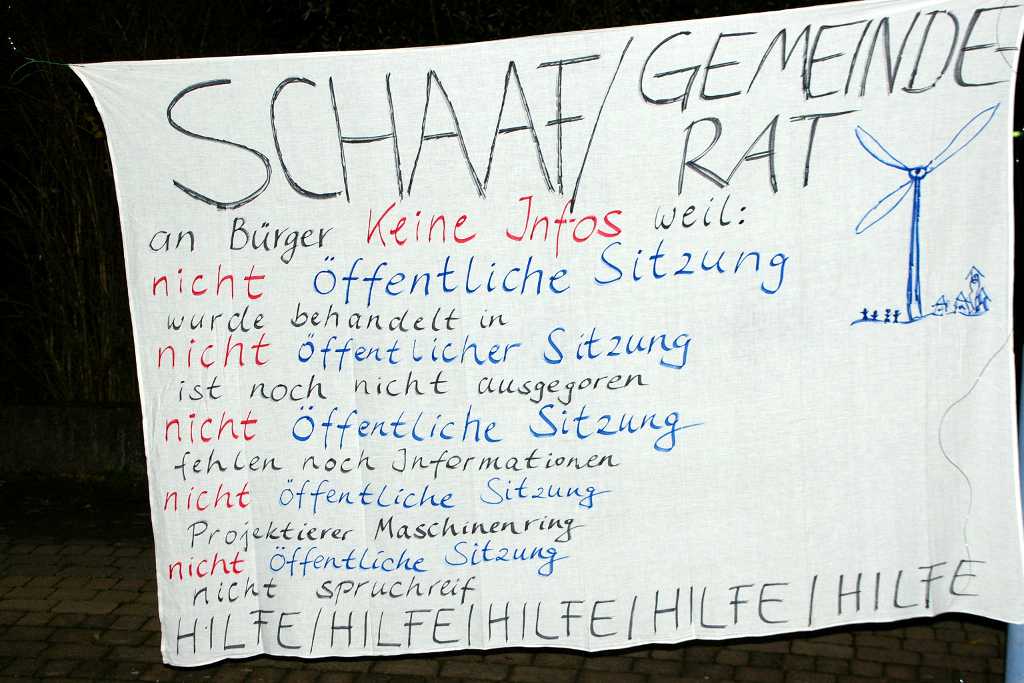 SCHAAF/GEMEINDE-
RAT
an Bürger Keine Infos weil:
nicht Öffentliche Sitzung
wurde behandelt in
nicht öffentlicher Sitzung
ist noch nicht ausgegoren
nicht Öffentliche Sitzung
fehlen noch Informationen
nicht öffentliche Sitzung
Projektierer Maschinenring
nicht Öffentliche Sitzung
nicht spruchreif
HILFE/HILFE/HILFE/HILFE/HILFE